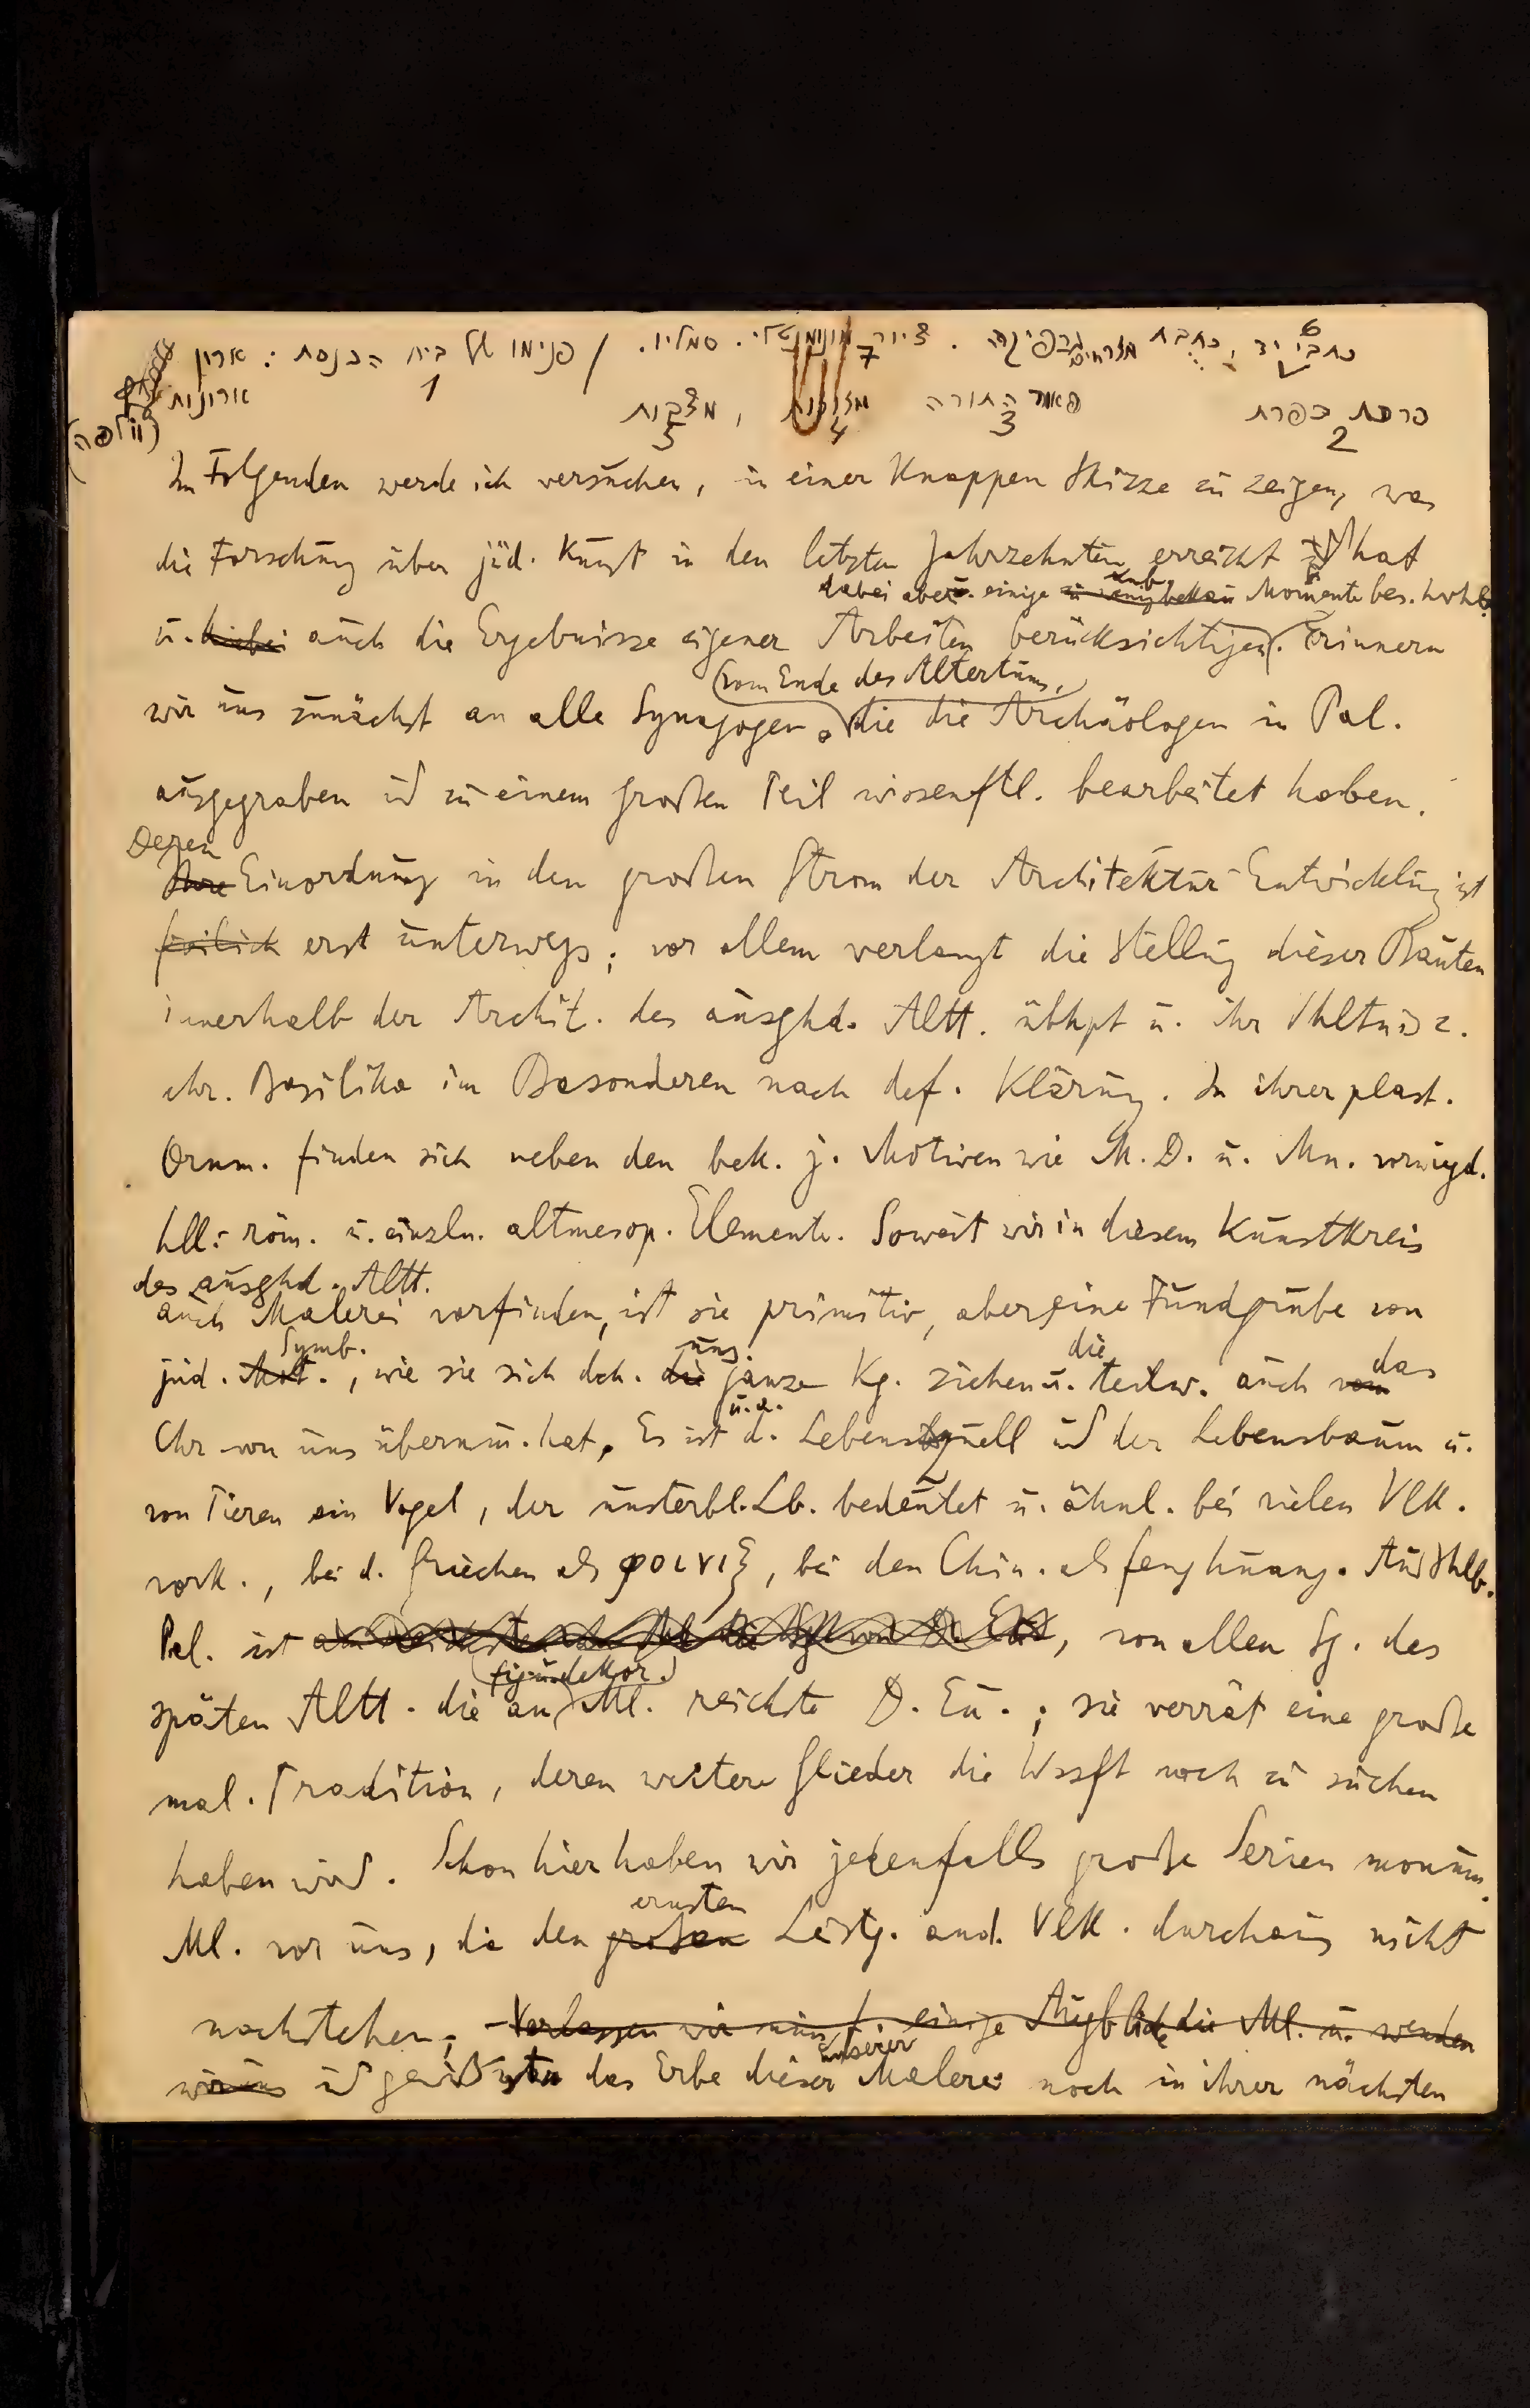 כתבי יד, כתבת מזרחים גרפיקה. ציור מונומנטלי. סמליו. / פנימו של בית הכנסת: ארון
6 7 1
פרכת כפרת תורה מצבות ארונות
2 3 4 5
Im Folgenden werde ich versuchen, in einer knappen Skizze zu zeigen, was
die Forschung über jüd. Kunst in den letzten Jahrzehnten erreicht hat
dabei aber einige Momente bes.
u. hiebei auch die Ergebnisse eigener Arbeiten berücksichtigen. Erinnern
(vom Ende des Altertums,)
wir uns zunächst an alle Synagogen, die die Archäologen in Pal.
ausgegraben und zu einem großen Teil wissenftl. bearbeitet haben.
Deren
Ihre Einordnung in den großen Strom der Architektur-Entwicklung ist
freilich erst unterwegs; vor allem verlangt die Stellung dieser Bauten
innerhalb der Archit. des ausghd. Altt. übhpt u. ihr Vhltnis z.
chr. Basilika im Besonderen nach def. Klärung. In ihrer plast.
Ornm. finden sich neben den bek. j. Motiven wie M.D. u. Mn. vorwigd.
hll.-röm. u. einzln. altmesop. Elemente. Soweit wir in diesem Kunstkreis
des ausghd. Altt.
auch Malerei vorfinden, ist sie primitiv, aber eine Fundgrube von
Symb. uns. die das
jüd. Mot., wie sie sich dch. die ganze Kg. ziehen u. teilw. auch vom
u.a.
Chr von uns übernm. hat. Es ist d. Lebensquell und der Lebensbaum u.
von Tieren ein Vogel, der unsterbl. Lb. bedeutet u. ähnl. bei vielen Vlk.
vork., bei d. Griechen als φοινιξ, bei den Chin. als fenghuang. Außhlb.
Pal. ist, von allen Sg. des
(figur. dekor.)
späten Altt. die an Ml. reichste D. Eu.; sie verrät eine große
mal. Tradition, deren weitere Glieder die Wssft noch zu suchen
haben wird. Schon hier haben wir jedenfalls große Serien monum.
ernsten
Ml. vor uns, die den großen Leistg. and. Vlk. durchaus nicht
nachstehen; Verlassen wir nun f. einige Augblicke die Ml. u. wenden
unserer
wir uns und das Erbe dieser Malerei noch in ihrer nächsten